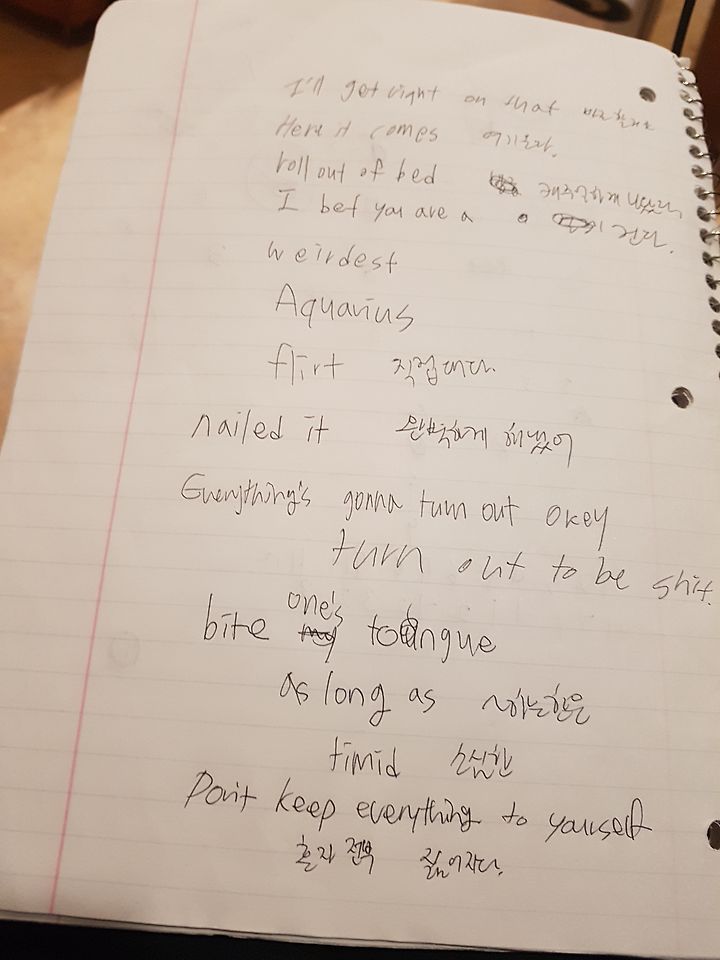 I'll get right on that 바로할게요
Here it comes 여기온다.
roll out of bed 나왔다,
I bet you are a 건다.
weirdest
Aquarius
flirt 직접대다.
nailed it 완벽하게 해냈어
Everything's gonna turn out okey
turn out to be shit.
bite one's tongue
as long as ~하는한은
timid 소심한
Don't keep everything to yourself
혼자 전부 짊어지다.